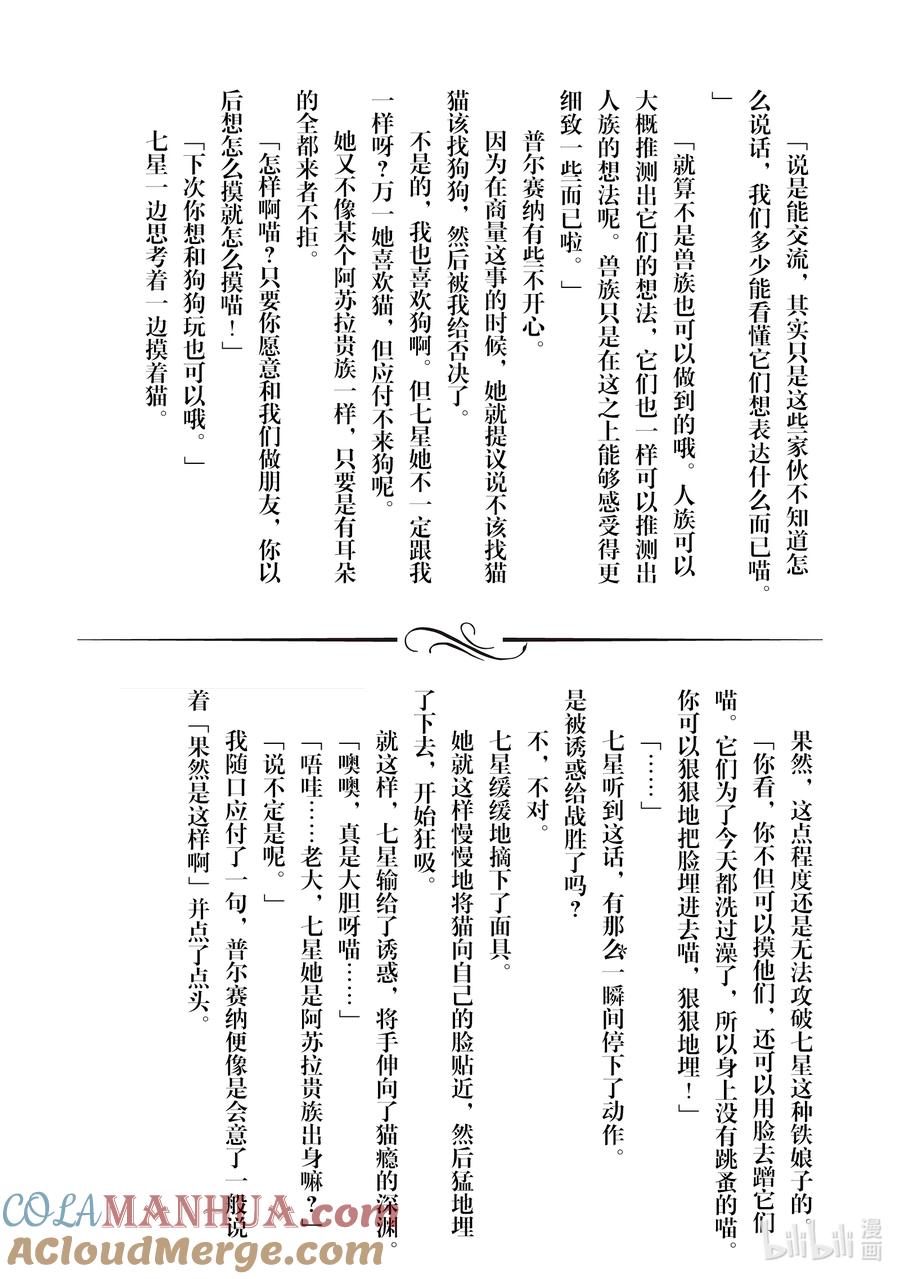 「说是能交流，其实只是这些家伙不知道怎
么说话，我们多少能看懂它们想表达什么而已喵。
」
「就算不是兽族也可以做到的哦。人族可以
大概推测出它们的想法，它们也一样可以推测出
人族的想法呢。兽族只是在这之上能够感受得更
细致一些而已啦。」
普尔赛纳有些不开心。
因为在商量这事的时候，她就提议说不该找猫
猫该找狗狗，然后被我给否决了。
不是的，我也喜欢狗啊。但七星她不一定跟我
一样呀？万一她喜欢猫，但应付不来狗呢。
她又不像某个阿苏拉贵族一样，只要是有耳朵
的全都来者不拒。
「怎样啊喵？只要你愿意和我们做朋友，你以
后想怎么摸就怎么摸喵！」
「下次你想和狗狗玩也可以哦。」
七星一边思考着一边摸着猫。
果然，这点程度还是无法攻破七星这种铁娘子的。
「你看，你不但可以摸他们，还可以用脸去蹭它们
喵。它们为了今天都洗过澡了，所以身上没有跳蚤的喵。
你可以狠狠地把脸埋进去喵，狠狠地埋！」
「……」
七星听到这话，有那么一瞬间停下了动作。
是被诱惑给战胜了吗？
不，不对。
七星缓缓地摘下了面具。
她就这样慢慢地将猫向自己的脸贴近，然后猛地埋
了下去，开始狂吸。
就这样，七星输给了诱惑，将手伸向了猫瘾的深渊。
「噢噢，真是大胆呀喵……」
「唔哇……老大，七星她是阿苏拉贵族出身嘛？」
「说不定是呢。」
我随口应付了一句，普尔赛纳便像是会意了一般说
着「果然是这样啊」并点了点头。
COLAMANHUA.com
ACloudMerge.com
bilibili 漫画